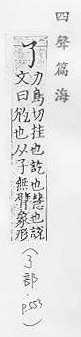 四聲篇海
了
力鳥切挂也訖也慧也說
文曰尥也从子無臂象形
(了部.p.553)